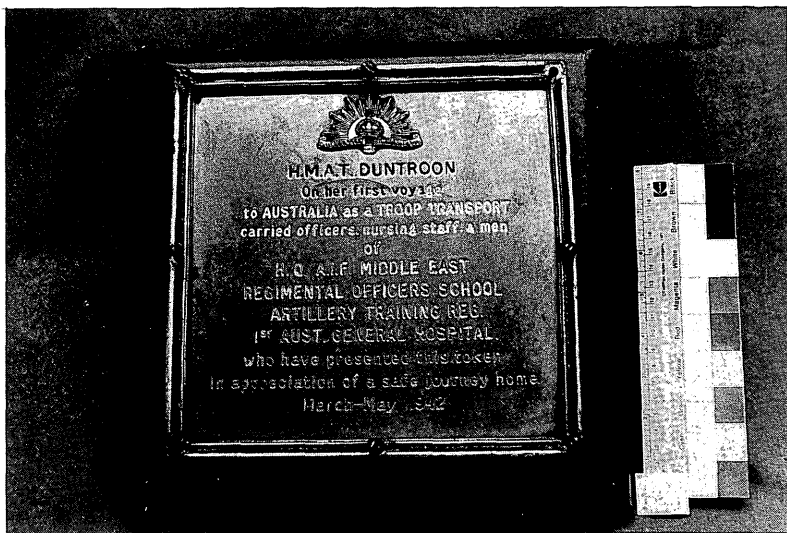 H.M.A.T. DUNTROON
On her first voyage
to AUSTRALIA as a TROOP TRANSPORT
carried officers, nursing staff, & men
of
H.Q. A.I.F. MIDDLE EAST
REGIMENTAL OFFICERS SCHOOL
ARTILLERY TRAINING REG.
1ST AUST. GENERAL HOSPITAL.
who have presented this token
in appreciation of a safe journey home.
March-May 1942
Magenta
White
Brown